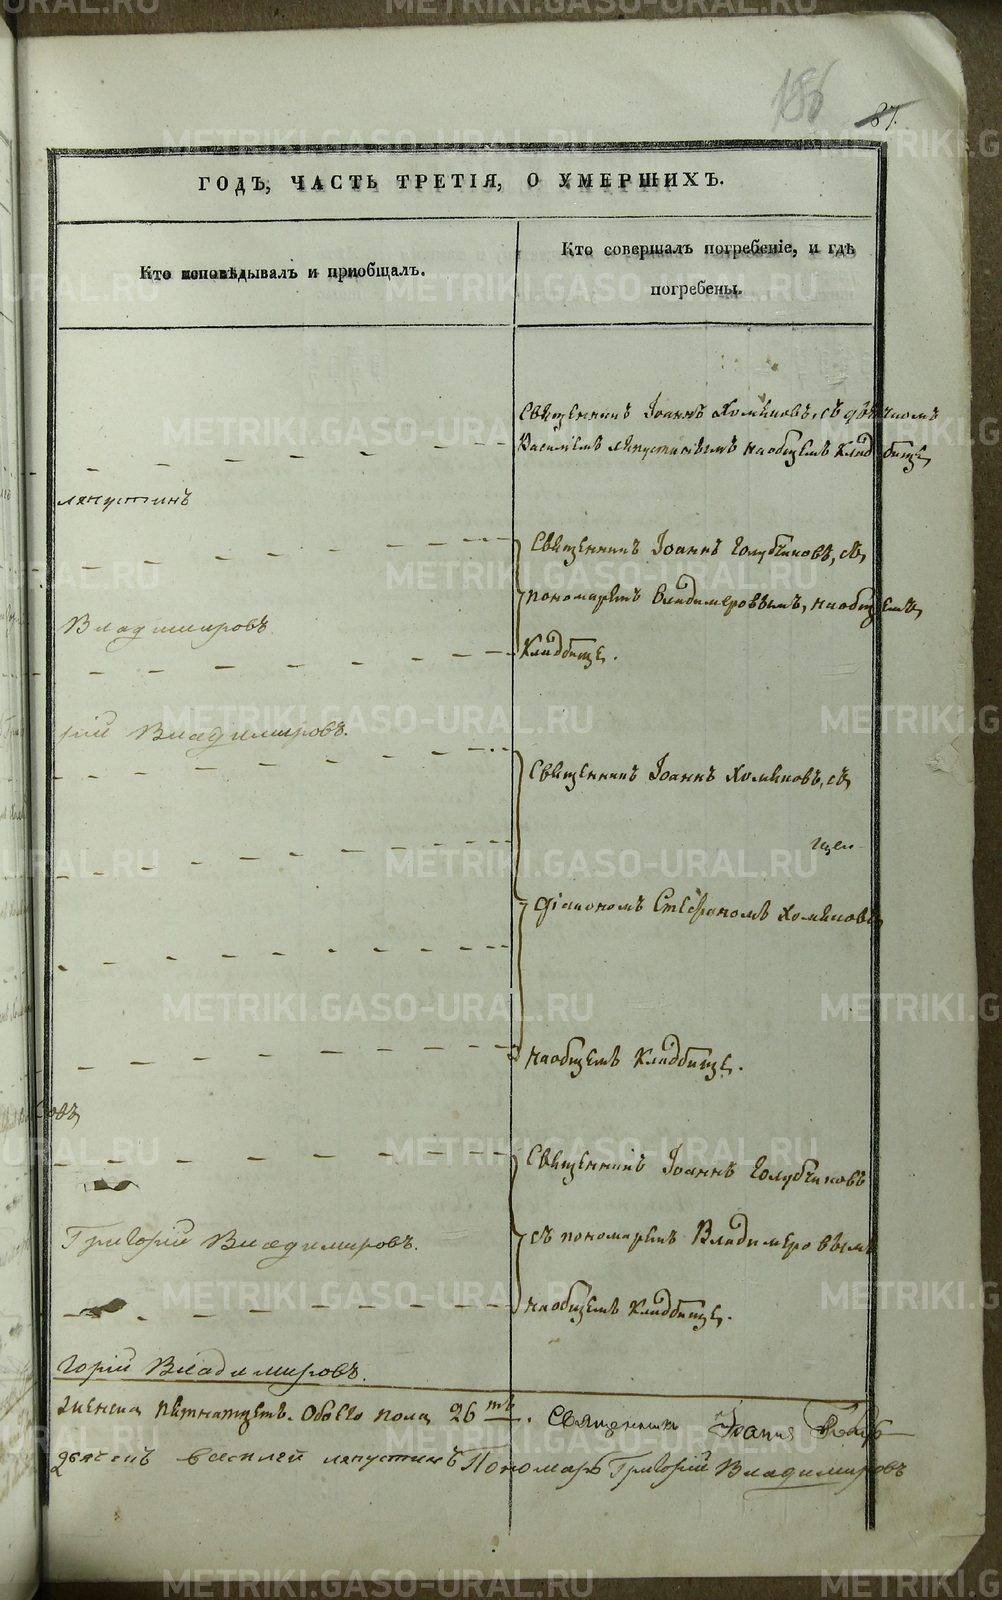 186
87.
ГОДЪ, ЧАСТЬ ТРЕТІЯ, О УМЕРШИХЪ.
Кто исповѣдывалъ и пріобщалъ.
Кто совершалъ погребеніе, и гдѣ
погребены.
Священникъ Іоаннъ Хомяковъ, съ діакономъ
Василіемъ Ляпустинымъ на общемъ кладбище,
Ляпустинъ
Священникъ Іоаннъ Голубчиковъ, съ
пономаремъ Владимеровымъ, на общемъ
Владимировъ
кладбище.
рій Владимировъ.
Священникъ Іоаннъ Хомяковъ, съ
діакономъ Стефаномъ Хомяковы
на общемъ кладбище.
Священникъ Іоаннъ Голубчиковъ
съ пономаремъ Владимеровымъ
Григорій Владимировъ.
на общемъ кладбище.
горій Владимировъ.
женска пятнатцеть. Обоего пола 26ть. Священникъ Іоаннъ
дьячекъ Василей Ляпустинъ Пономарь Григорій Владимировъ
METRIKI.GASO-URAL.RU